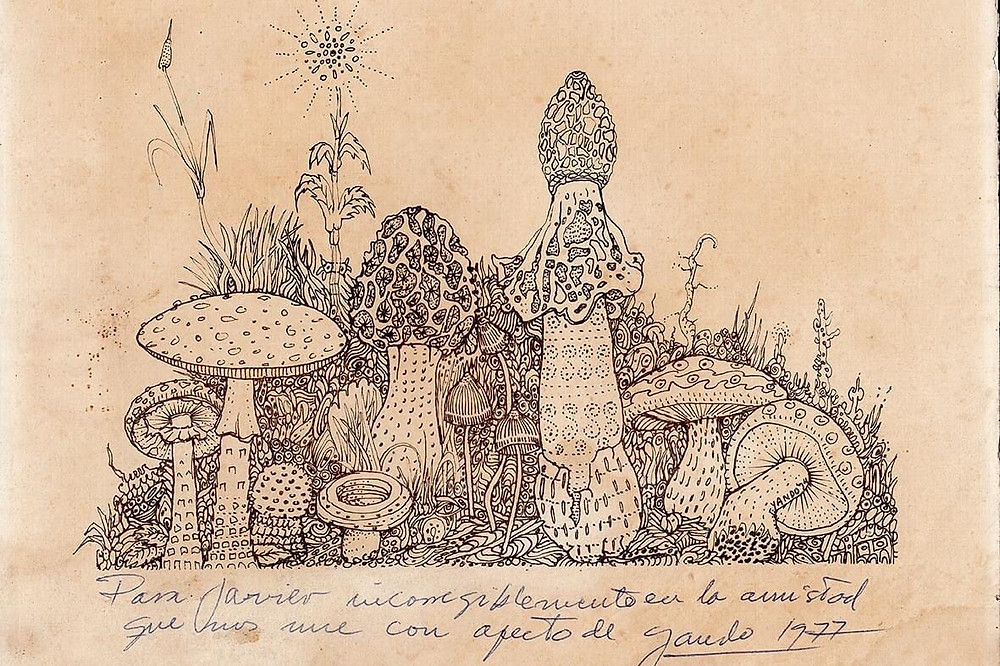 YANDO
Para Javier incorregiblemente en la amistad
que nos une con afecto de yando 1977